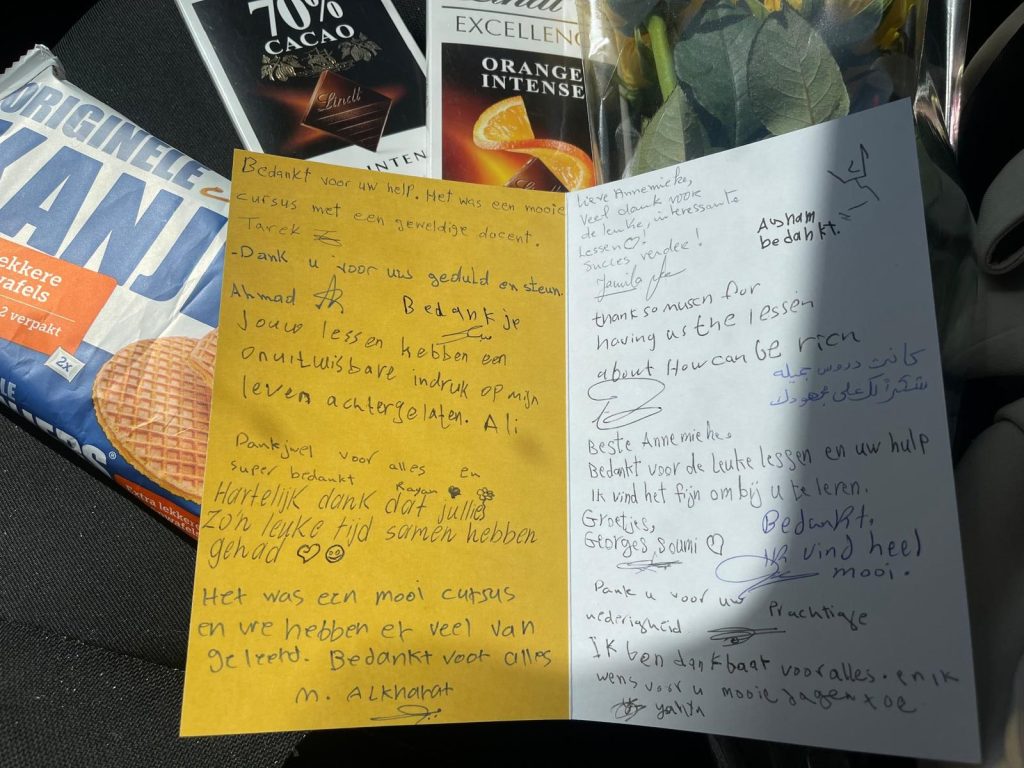 70%
CACAO
Lindt
INTEN
Lindt
EXCELLENC
ORANGE
INTENSE
ORIGINELE
KANJ
ekkere
wafels
2 verpakt
2x
LE
Extra lekkere
wafels
Bedankt voor uw help. Het was een mooie
cursus met een geweldige docent.
Tarek
-Dank u voor uw geduld en steun.
Ahmad
Bedankje
Jouw lessen hebben een
onuitwisbare indruk op mijn
leven achtergelaten. Ali
Dankjwel voor alles en
super bedankt Rayan
Hartelijk dank dat jullie
zo'n leuke tijd samen hebben
gehad ♡ ☺
Het was een mooi cursus
en we hebben er veel van
geleerd. Bedankt voor alles
M. ALKharat
Lieve Annemieke,
veel dank voor
de leuke, interessante
lessen ♡!
Succes verder!
Jamila
Ausham
bedankt.
thank so musch for
having us the lessen
about How can be rich
كانت دروس جميله
شكراً لك على مجهودك
Beste Annemieke,
Bedankt voor de leuke lessen en uw hulp
Ik vind het fijn om bij u te leren.
Groetjes,
Georges Soumi ♡
Bedankt,
ik vind heel
mooi.
Dank u voor uw
nederigheid
Prachtige
Ik ben dankbaar voor alles. en ik
wens voor u mooie dagen toe
yahya